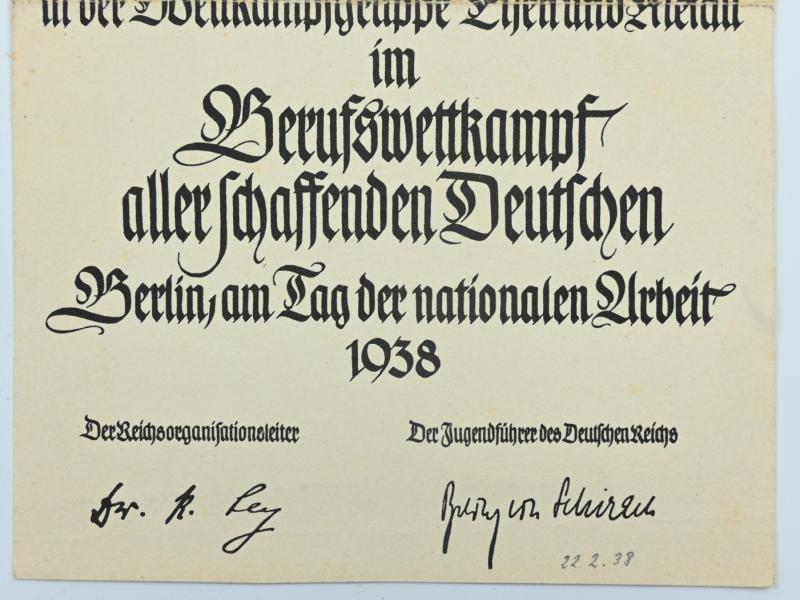 in der Wettkampfgruppe Eisen und Metall
im
Berufswettkampf
aller schaffenden Deutschen
Berlin, am Tag der nationalen Arbeit
1938
Der Reichsorganisationsleiter
Der Jugendführer des Deutschen Reichs
Dr. R. Ley
Baldur von Schirach
22.2.38